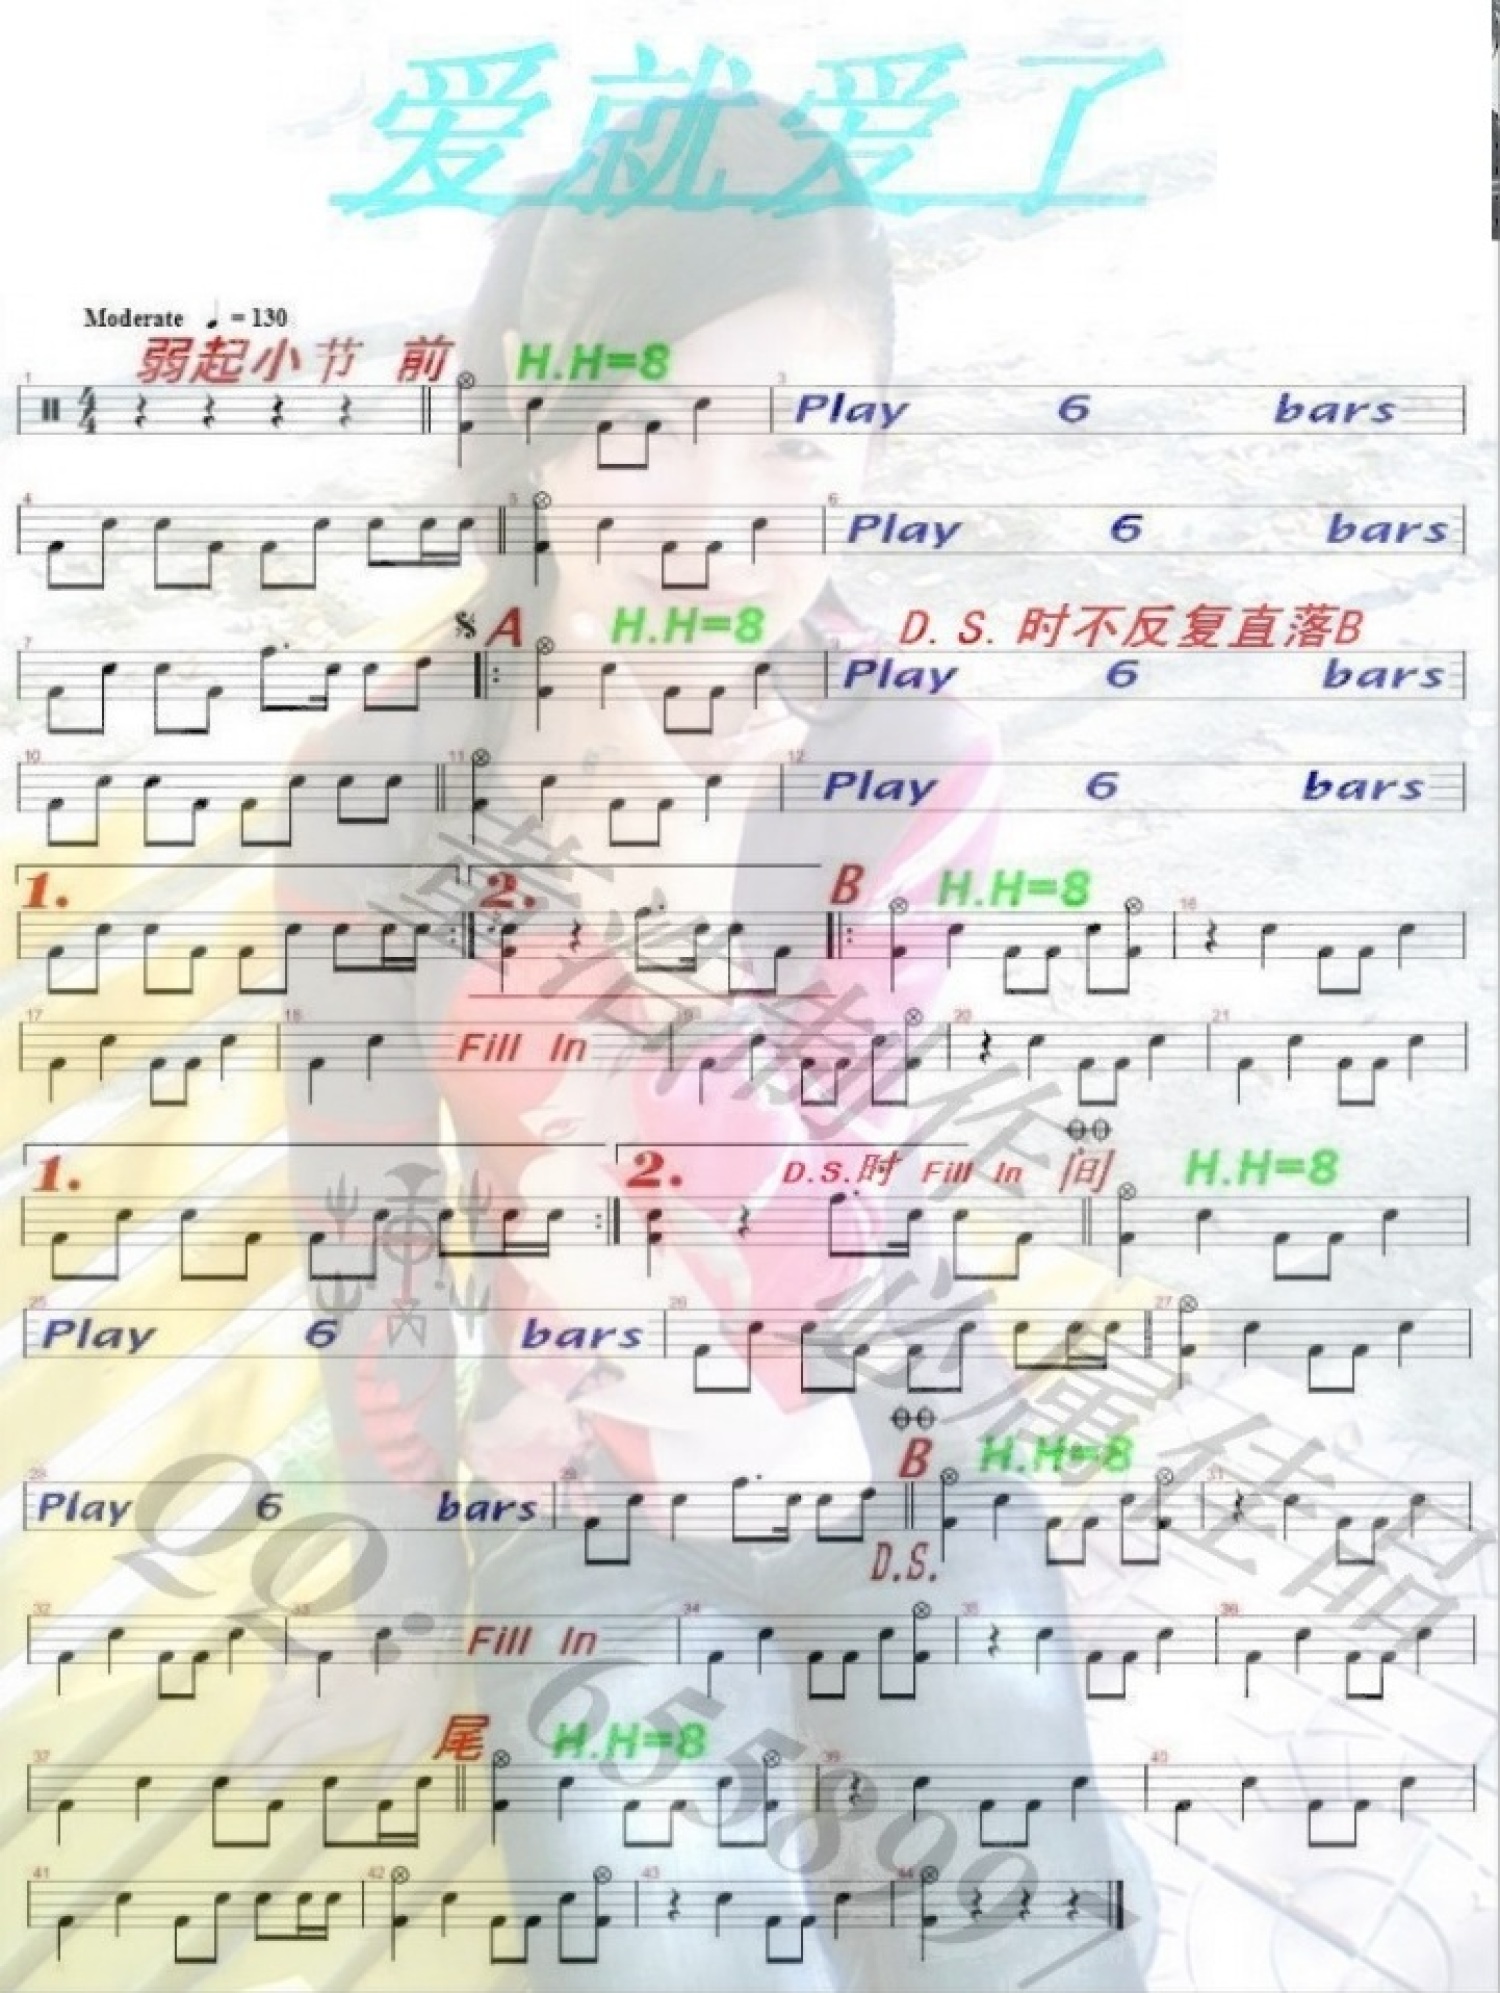 爱就爱了
Moderate ♩ = 130
弱起小节 前 H.H=8
1 4/4 3 Play 6 bars
4 5 6 Play 6 bars
A H.H=8 D.S.时不反复直落B
7 Play 6 bars
10 11 12 Play 6 bars
1. 2. B H.H=8
16
17 18 Fill In 19 20 21
1. 2. D.S.时 Fill In 间 H.H=8
25 Play 6 bars 26 27
B H.H=8
28 Play 6 bars 29 31
D.S.
32 33 Fill In 34 35 36
尾 H.H=8
37 39 40
41 42 43 44
黄浩制作 必属佳品
QQ: 6558997